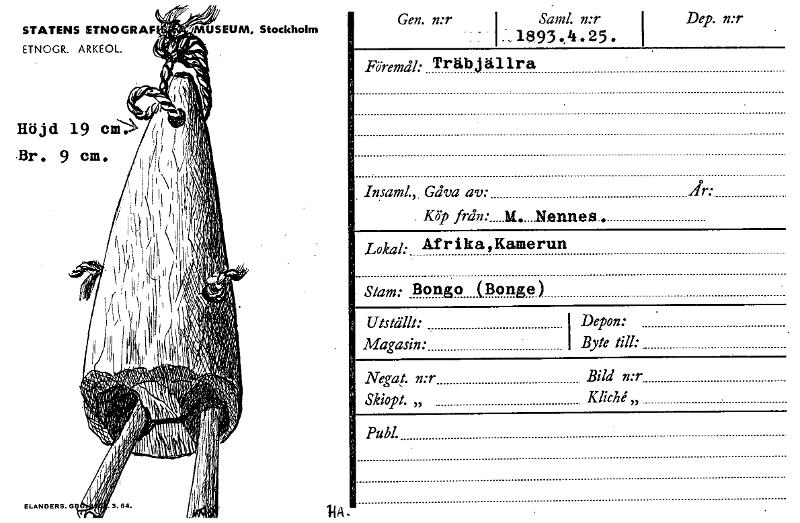 STATENS ETNOGRAFISKA MUSEUM, Stockholm
ETNOGR. ARKEOL.
Höjd 19 cm.
Br. 9 cm.
ELANDERS. GBG 3. 64.
Gen. n:r
Saml. n:r
1893.4.25.
Dep. n:r
Föremål: Träbjällra
Insaml., Gåva av: År:
Köp från: M. Nennes.
Lokal: Afrika,Kamerun
Stam: Bongo (Bonge)
Utställt: Depon:
Magasin: Byte till:
Negat. n:r Bild n:r
Skiopt. „ Kliché „
Publ.
HA.